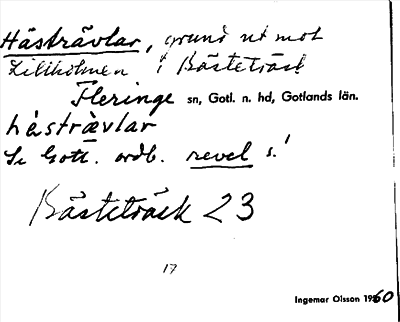 Hästrävlar, grund ut mot
Lillholmen i Bästeträsk
Fleringe sn, Gotl. n. hd, Gotlands län.
hàstrævlar
Se Gotl. ordb. revel s.!
Bästeträsk 23
17
Ingemar Olsson 1960